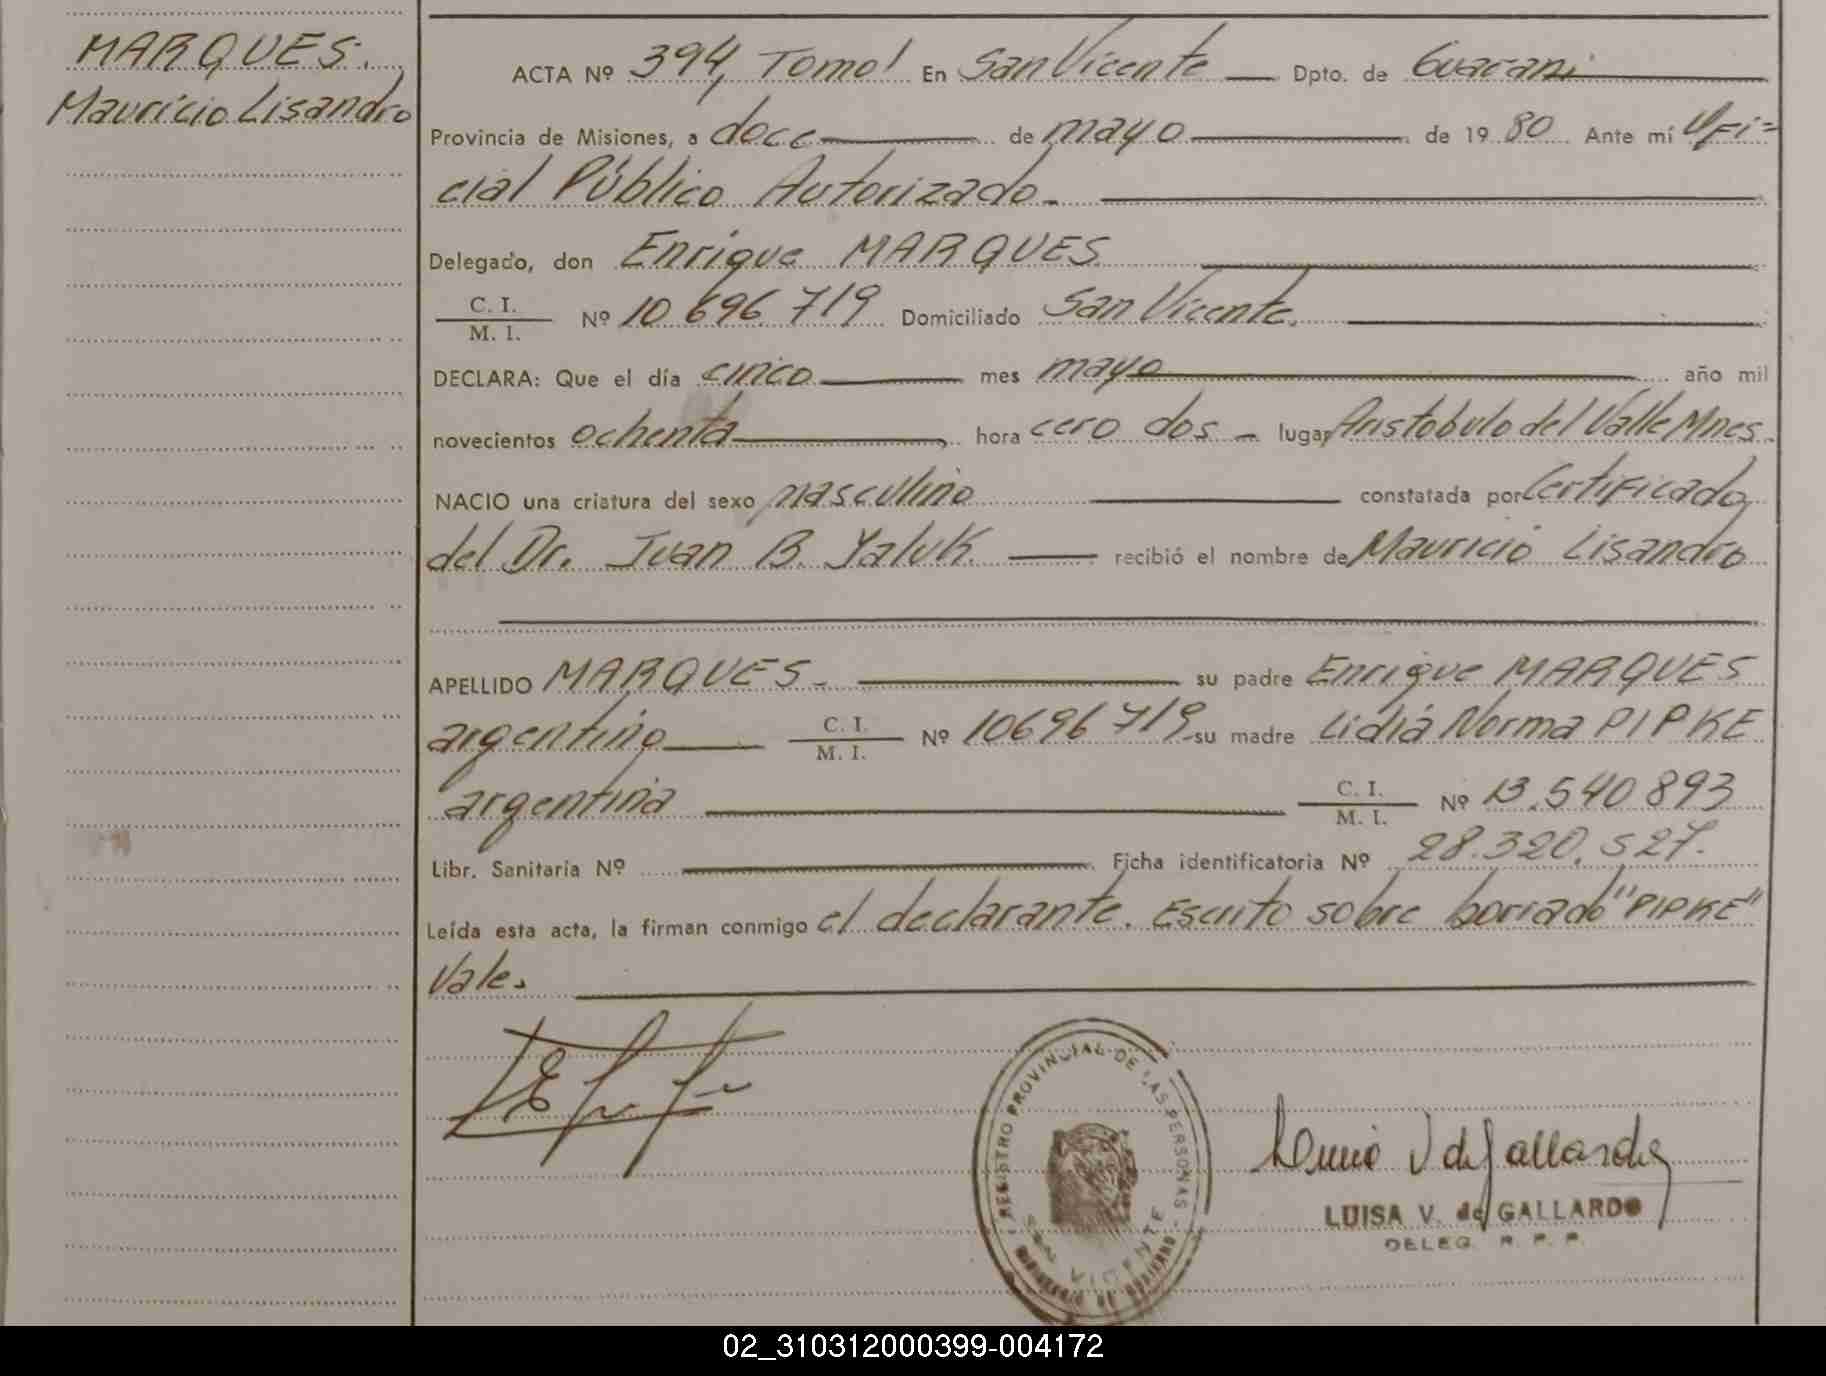 MARQUES.
Mauricio Lisandro
ACTA Nº 394, Tomo I En San Vicente Dpto. de Guarani
Provincia de Misiones, a doce de mayo de 1980 Ante mí Ofi=
cial Público Autorizado.
Delegado, don Enrique MARQUES
C. I.
M. I. Nº 10 696 719 Domiciliado San Vicente.
DECLARA: Que el día cinco mes mayo año mil
novecientos ochenta hora cero dos lugar Aristobulo del Valle Mnes.
NACIO una criatura del sexo masculino constatada por Certificado
del Dr. Juan B. Yaluk recibió el nombre de Mauricio Lisandro
APELLIDO MARQUES. su padre Enrique MARQUES
argentino C. I. M. I. Nº 10696 719 su madre Lidia Norma PIPKE
argentina C. I. M. I. Nº 13.540 893
Libr. Sanitaria Nº Ficha identificatoria Nº 28.320.527.
Leída esta acta, la firman conmigo el declarante. Escrito sobre borrado "PIPKE"
Vale.
REGISTRO PROVINCIAL DE LAS PERSONAS
SAN VICENTE
LUISA V. de GALLARDO
DELEG. R. P. P.
02_310312000399-004172